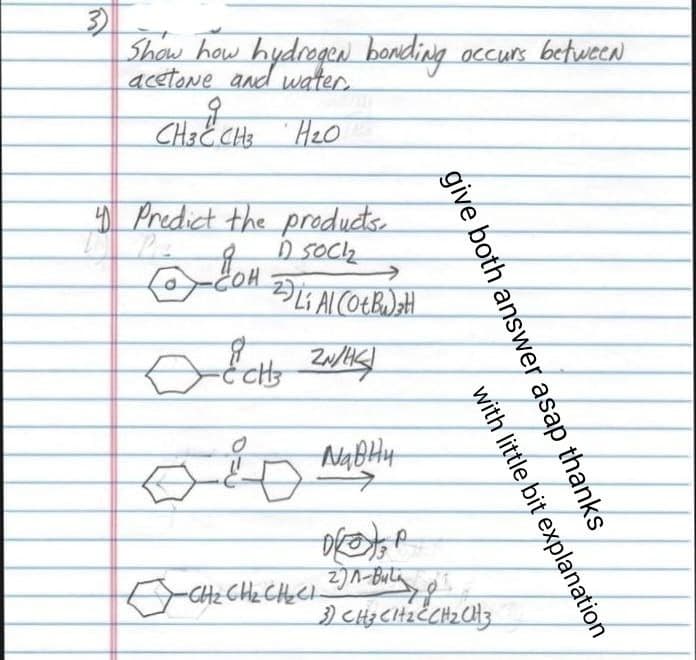 3)
Show how hydrogen bonding occurs between
acetone and water.
O
CH3CCH3 H2O
4) Predict the products.
O 1) SOCl2
COH 2) LiAl(OtBu)3H
O Zn/HCl
CCH3
O NaBH4
C
1) ( )3P
2) n-BuLi
CH2CH2CH2Cl O
3) CH3CH2CCH2CH3
give both answer asap thanks
with little bit explanation